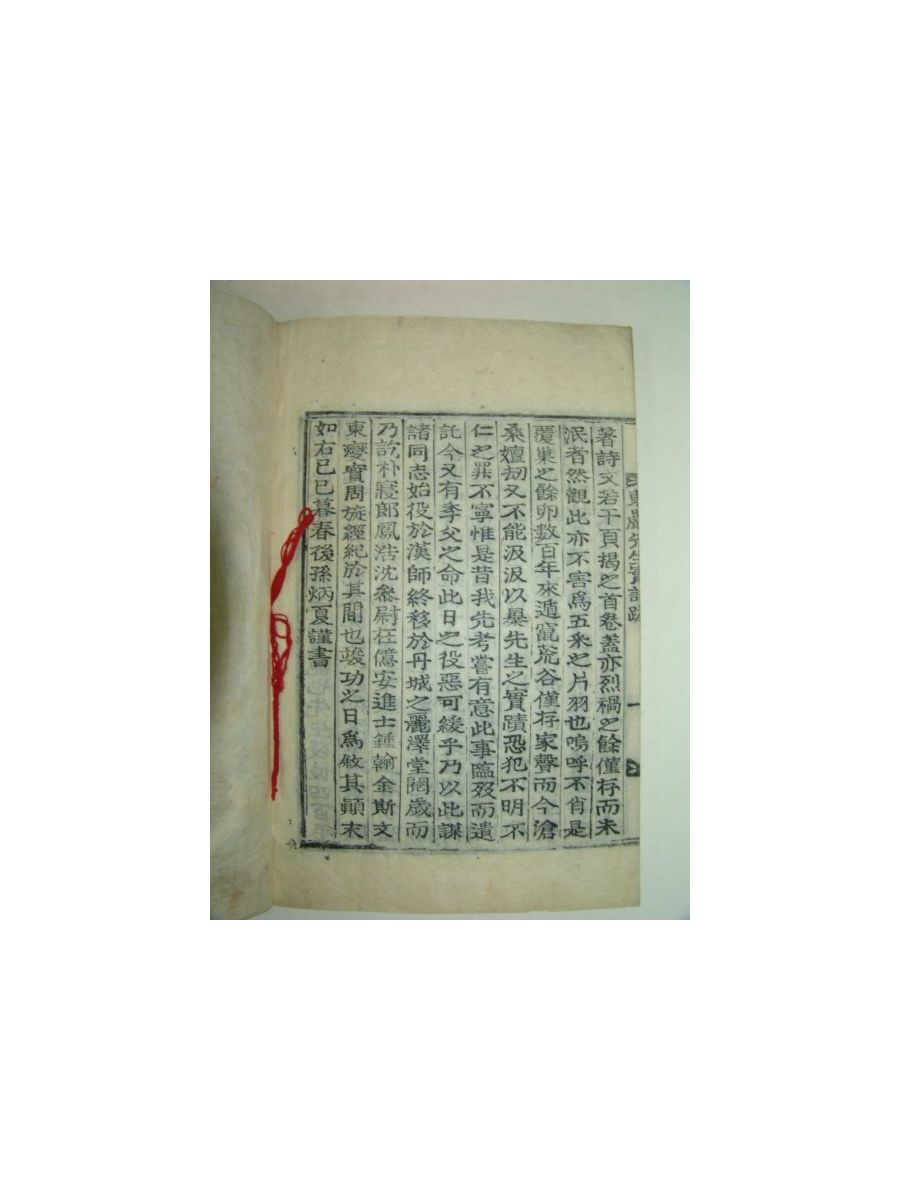 東巖先生實記跋
一
著詩文若干頁揭之首卷盖亦烈禍之餘僅存而未
泯者然觀此亦不害爲五釆之片羽也嗚呼不肖是
覆巢之餘卵數百年來遁竄荒谷僅存家聲而今滄
桑嬗刼又不能汲汲以暴先生之實蹟恐犯不明不
仁之罪不寧惟是昔我先考嘗有意此事臨歿而遺
託今又有季父之命此日之役惡可緩乎乃以此謀
諸同志始役於漢師終移於丹城之麗澤堂閱歲而
乃訖朴寢郞鳳浩沈叅尉枉億安進士鍾翰金斯文
東燮實周旋經紀於其間也竣功之日爲敘其顚末
如右己巳暮春後孫炳夏謹書